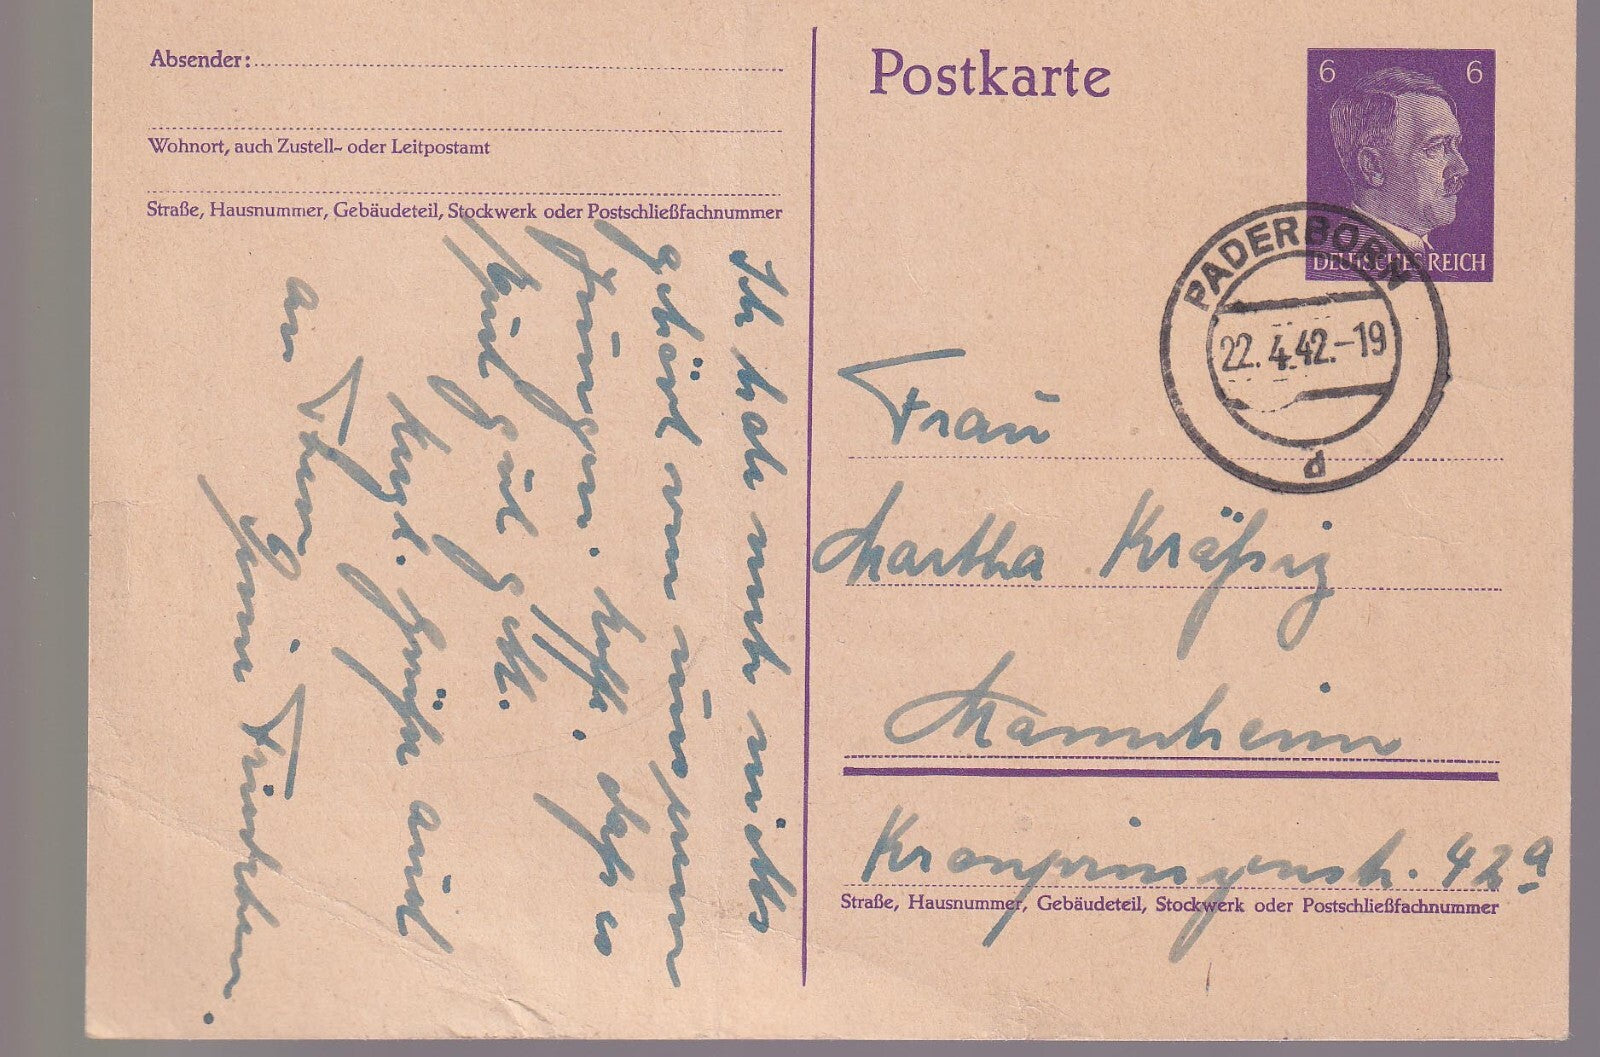 Absender:
Wohnort, auch Zustell- oder Leitpostamt
Straße, Hausnummer, Gebäudeteil, Stockwerk oder Postschließfachnummer
Ich hab noch nichts
gehört von unserm
Jungen. daß es
gut geht.
Herzl. Grüße auch
an
Postkarte
6 6
DEUTSCHES REICH
PADERBORN
22.4.42.-19
d
Frau
Martha Kräßig
Mannheim
Kronprinzenstr. 42a
Straße, Hausnummer, Gebäudeteil, Stockwerk oder Postschließfachnummer